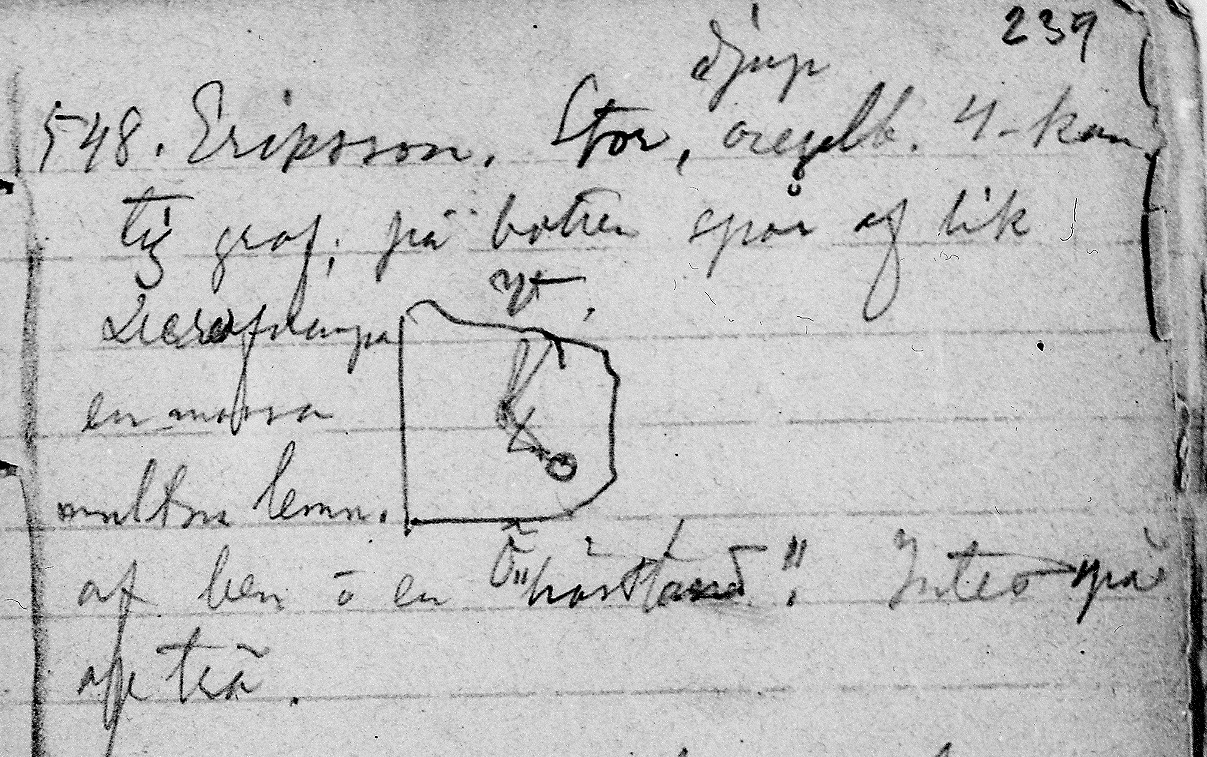 239
djup
548. Eriksson. Stor, oregelb. 4-kan
tig graf; på botten spår af lik
en massa
multna lemn.
af ben o en "hästtand". Intet spår
af trä.